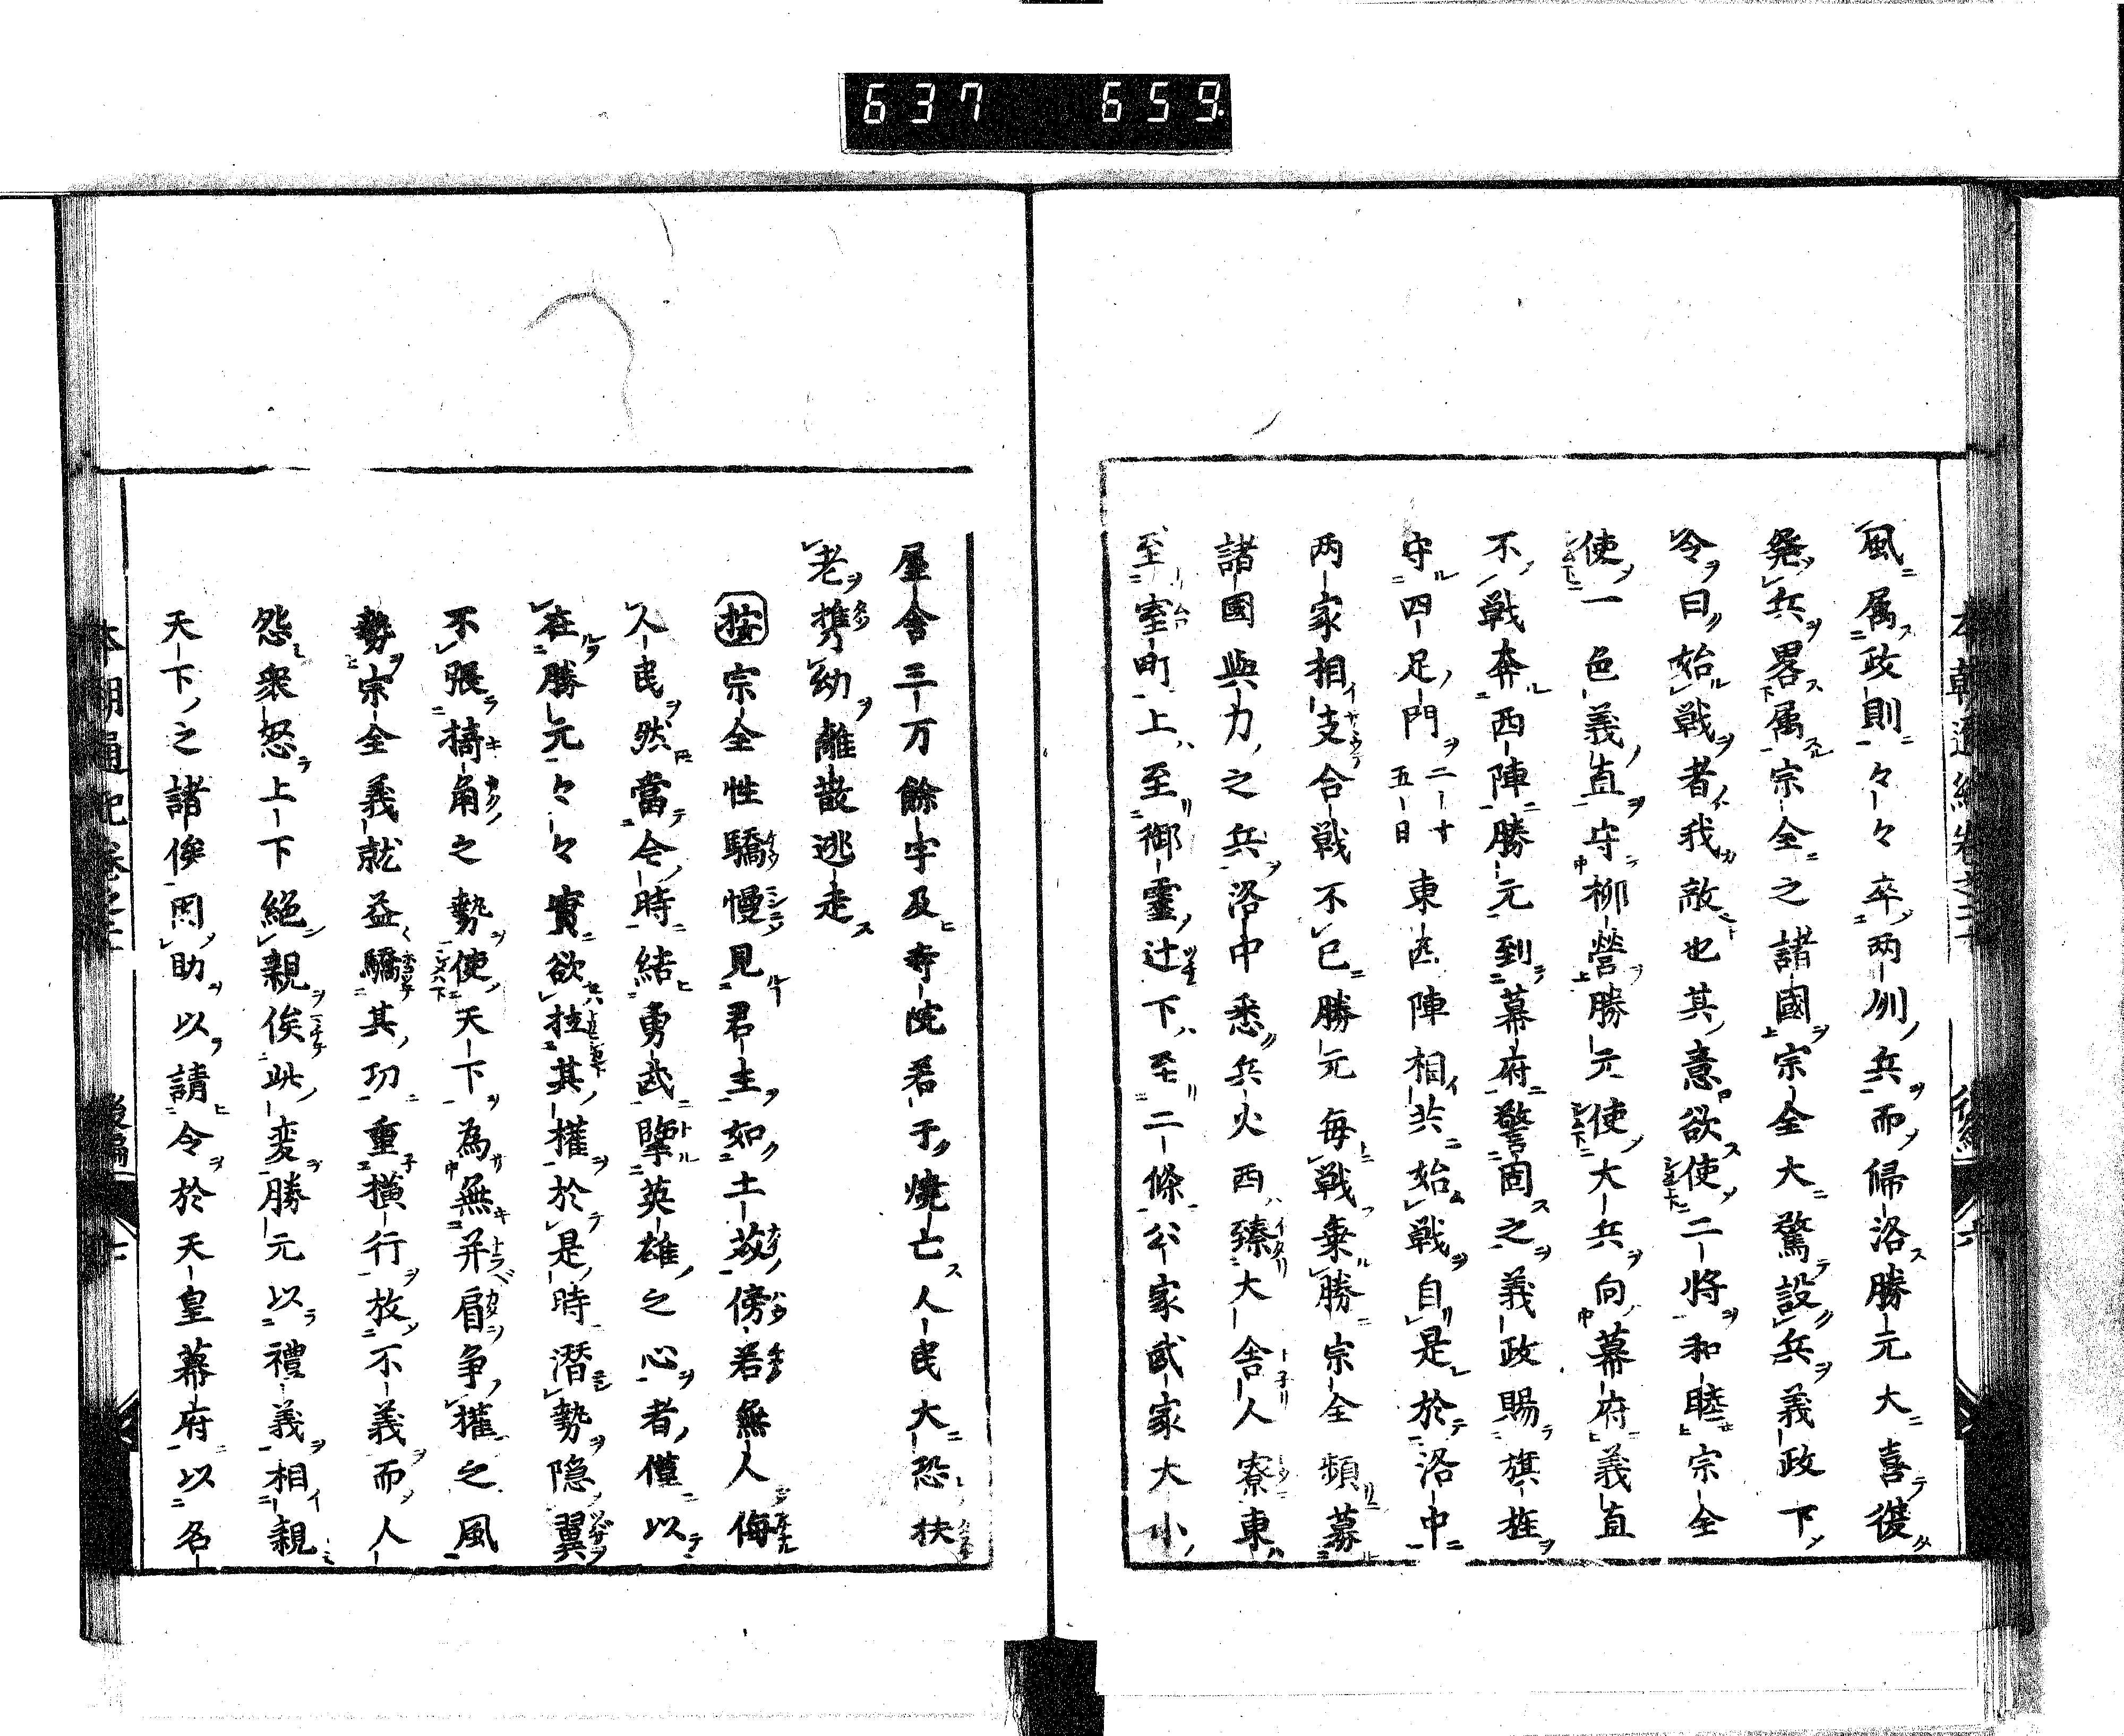 637 659
風属政則々々卒両州兵而帰洛勝元大喜後
発兵畧属宗全之諸國宗全大驚設兵義政下
令曰始戦者我敵也其意欲使二将和睦宗全
使一色義直守柳営勝元使大兵向幕府義直
不戦奔西陣勝元到幕府警固之義政賜旗旌
守四足門二十五日東西陣相共始戦自是於洛中
両家相支合戦不已勝元毎戦乗勝宗全頻募
諸國與力之兵洛中悉兵火西臻大舎人寮東
至室町上至御霊辻下至二條公家武家大小
屋舎三万餘宇及寺院若干焼亡人民大恐扶
老携幼離散逃走
按宗全性驕慢見君主如土芥傍若無人侮
人民然當今時結勇武擥英雄之心者僅以
在勝元々々實欲拉其權於是時潜勢隠翼
不張掎角之勢使天下為無并肩争權之風
勢宗全義就益驕其功重横行放不義而人
怨衆怒上下絶親俟此変勝元以禮義相親
天下之諸侯因助以請令於天皇幕府以名
本朝通紀巻之二十 後編 六
本朝通紀巻之二十 後編 七